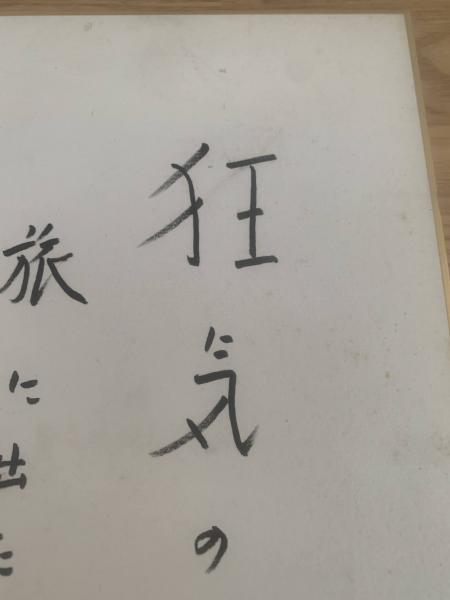 狂気の
旅に出た